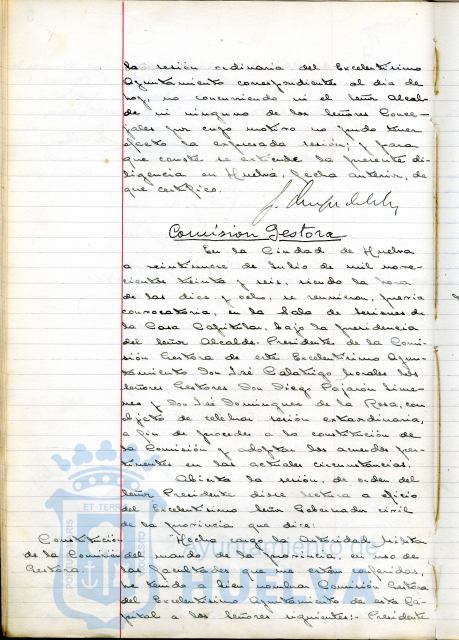 la sesión ordinaria del Excelentísimo
Ayuntamiento correspondientes al día de
hoy, no concurriendo ni el Señor Alcal-
de ni ninguno de los Señores Conce-
jales por cuyo motivo no pudo tener
efecto la expresada sesión; y para
que conste se extiende la presente di-
ligencia en Huelva, fecha anterior, de
que certifico.
Comisión Gestora
En la Ciudad de Huelva
a veintinueve de Julio de mil nove-
cientos treinta y seis, siendo la hora
de las diez y ocho, se reunieron, previa
convocatoria, en la Sala de Sesiones de
la Casa Capitular, bajo la presidencia
del Señor Alcalde-Presidente de la Comi-
sión Gestora de este Excelentísimo Ayun-
tamiento Don José Morales los
Señores Gestores Don Diego Pajarón Jime-
nes y Don José Domínguez de la Rosa, con
objeto de celebrar sesión extraordinaria,
a fin de proceder a la constitución de
la Comisión y adoptar los acuerdos per-
tinentes en las actuales circunstancias.
Abierta la sesión, de orden del
Señor Presidente diose lectura a oficio
del Excelentísimo Señor Gobernador civil
de la provincia que dice:
Constitución "Hecho cargo la Autoridad Militar
de la Comisión del mando de la provincia, en uso de
Gestora las facultades que me están conferidas,
he tenido a bien nombrar Comisión Gestora
del Excelentísimo Ayuntamiento de esta Ca-
pital a los señores siguientes:- Presidente
Ayuntamiento de
HUELVA